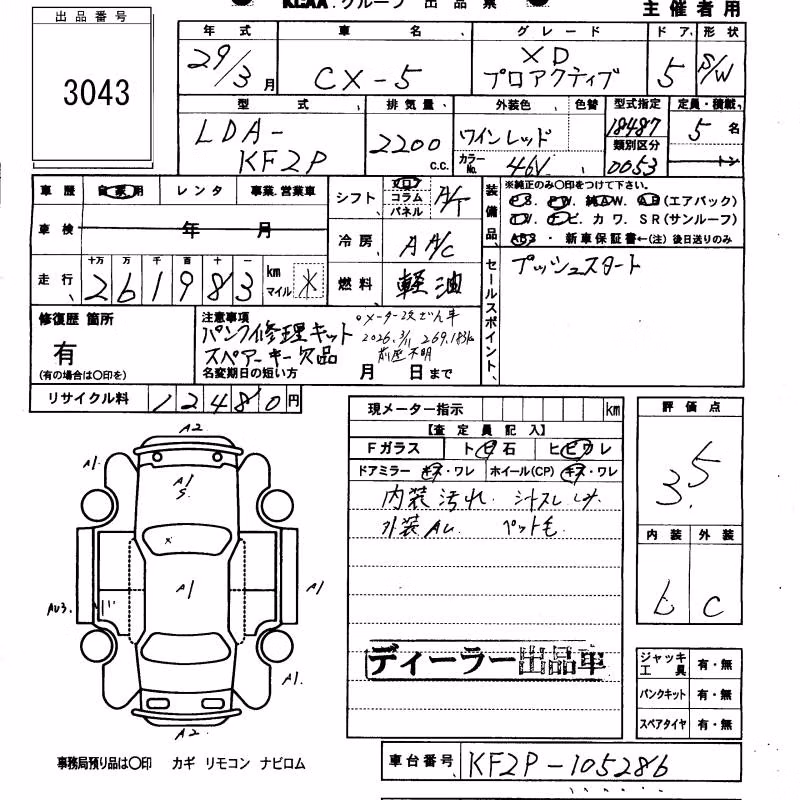 KCAA.グループ 出品票
主催者用
出品番号
3043
年式 車名 グレード ドア 形状
29/3月 CX-5 XD プロアクティブ 5 S/W
型式 排気量 外装色 色替 型式指定 定員・積載
LDA-KF2P 2200 c.c. ワインレッド 18487 5名
カラーNo. 46V 類別区分 0053 トン
車歴 自家用 レンタ 事業.営業車
シフト フロ コラム パネル A/T
装備品 ※純正のみ○印をつけて下さい。
P.S. P.W. 純A.W. A.B(エアバック)
T.V. ナビ. カワ. SR(サンルーフ)
ABS ・新車保証書←(注)後日送りのみ
車検 年 月
冷房 A A/C
走行 十万 万 千 百 十 一
261983 km マイル ※
燃料 軽油
セールスポイント
プッシュスタート
修復歴 箇所
有
(有の場合は○印を)
注意事項
○メーター改ざん车
パンク修理キット 2026.3/11 269.183km
スペアーキー欠品 前歴不明
名変期日の短い方 月 日まで
リサイクル料 12480円
現メーター指示 km
【査定員記入】
Fガラス トビ石 ヒビワレ
ドアミラー キズ・ワレ ホイール(CP) キズ・ワレ
内装汚れ. シミ
外装AU. ペット毛
ディーラー出品車
評価点
3.5
内装 外装
C
A2
A1.
A1
S.
×
A1
A1
AU3.
A1.
A2.
ジャッキ工具 有・無
パンクキット 有・無
スペアタイヤ 有・無
事務局預り品は○印 カギ リモコン ナビロム
車台番号 KF2P-105286